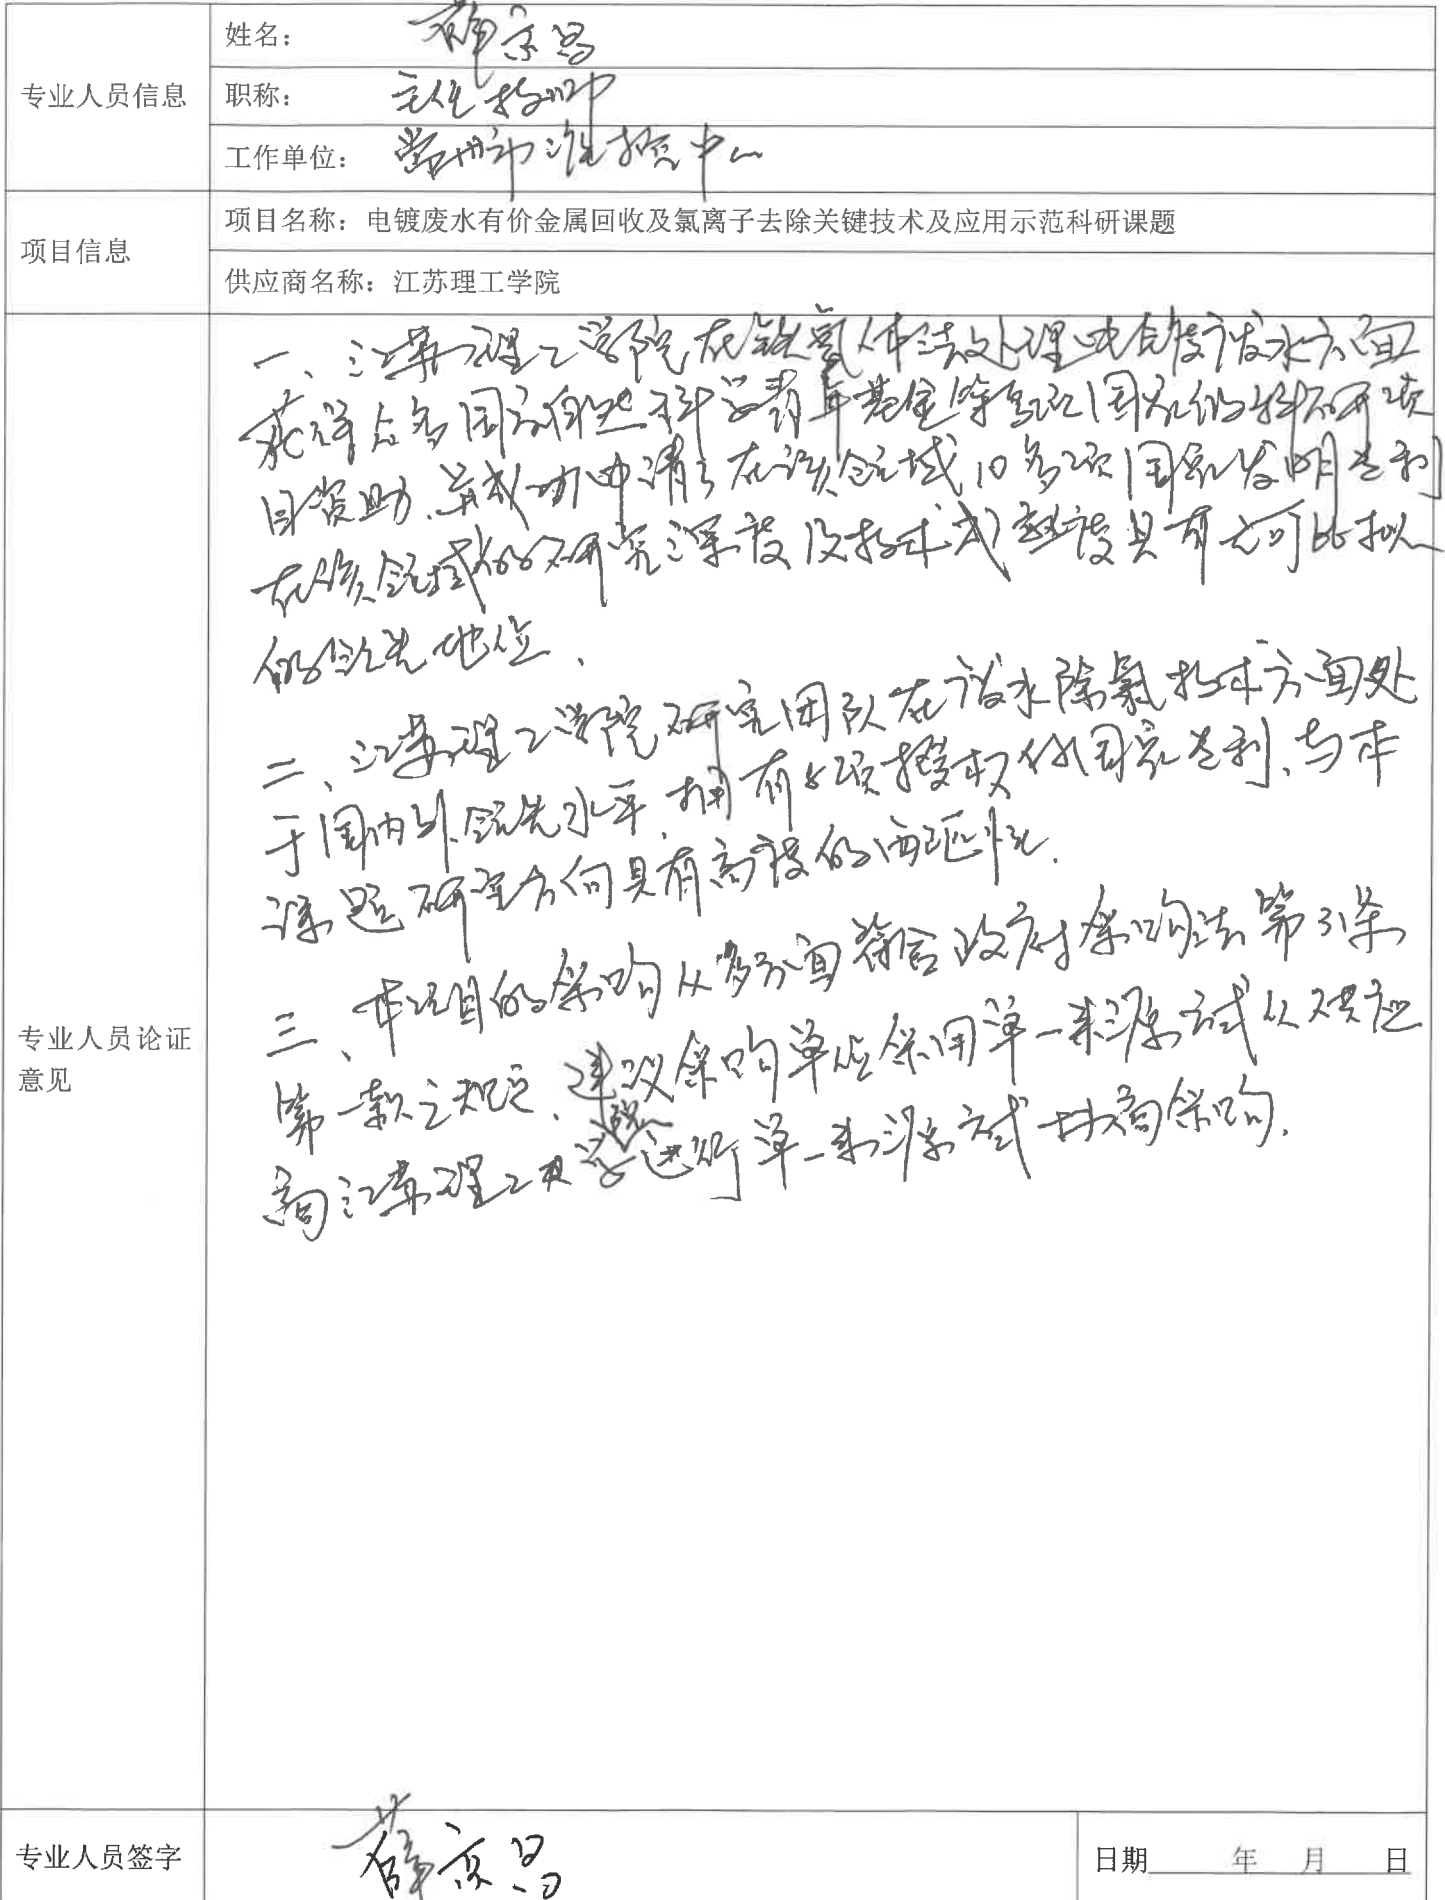 专业人员信息
姓名：薛京昌
职称：主任技师
工作单位：常州市准捡中心
项目信息
项目名称：电镀废水有价金属回收及氯离子去除关键技术及应用示范科研课题
供应商名称：江苏理工学院
专业人员论证
意见
一、江苏理工学院在铁氧体法处理电镀废水方面
获得众多国家自然科学青年基金等多项国家级科研项
目资助、并成功申请了在该领域10多项国家发明专利
在该领域的研究深度及技术成熟度具有无可比拟
的领先地位、
二、江苏理工学院研究团队在废水除氯技术方面处
于国内外领先水平、拥有5项授权的国家专利、与本
课题研究方向具有高度的匹配性.
三、本项目的采购从多方面符合政府采购法第31条
第一款之规定、建议采购单位采用单一来源方式从供应
商江苏理工学院进行单一来源方式协商采购.
专业人员签字
薛京昌
日期 年 月 日